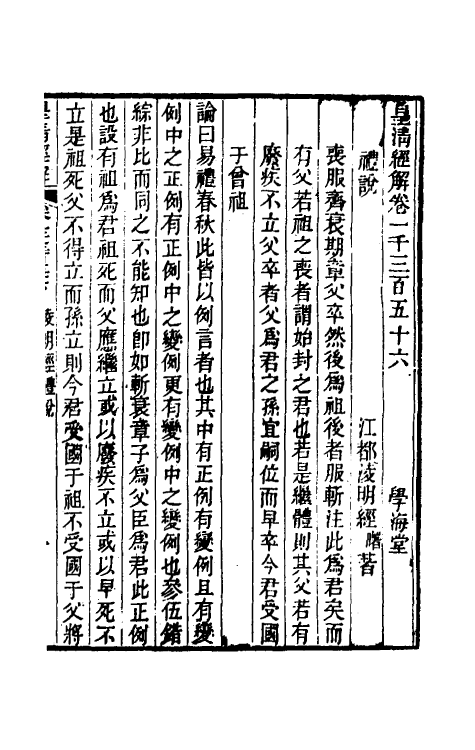 皇清經解卷一千三百五十六 學海堂
禮說 江都淩明經曙著
喪服齊衰期章父卒然後爲祖後者服斬注此爲君矣而
有父若祖之喪者謂始封之君也若是繼體則其父若有
廢疾不立父卒者父爲君之孫宜嗣位而早卒今君受國
于曾祖
論曰易禮春秋此皆以例言者也其中有正例有變例且有變
例中之正例有正例中之變例更有變例中之變例也參伍錯
綜非比而同之不能知也卽如斬衰章子爲父臣爲君此正例
也設有祖爲君祖死而父應繼立或以廢疾不立或以早死不
立是祖死父不得立而孫立則今君受國于祖不受國于父將
淩明經禮說